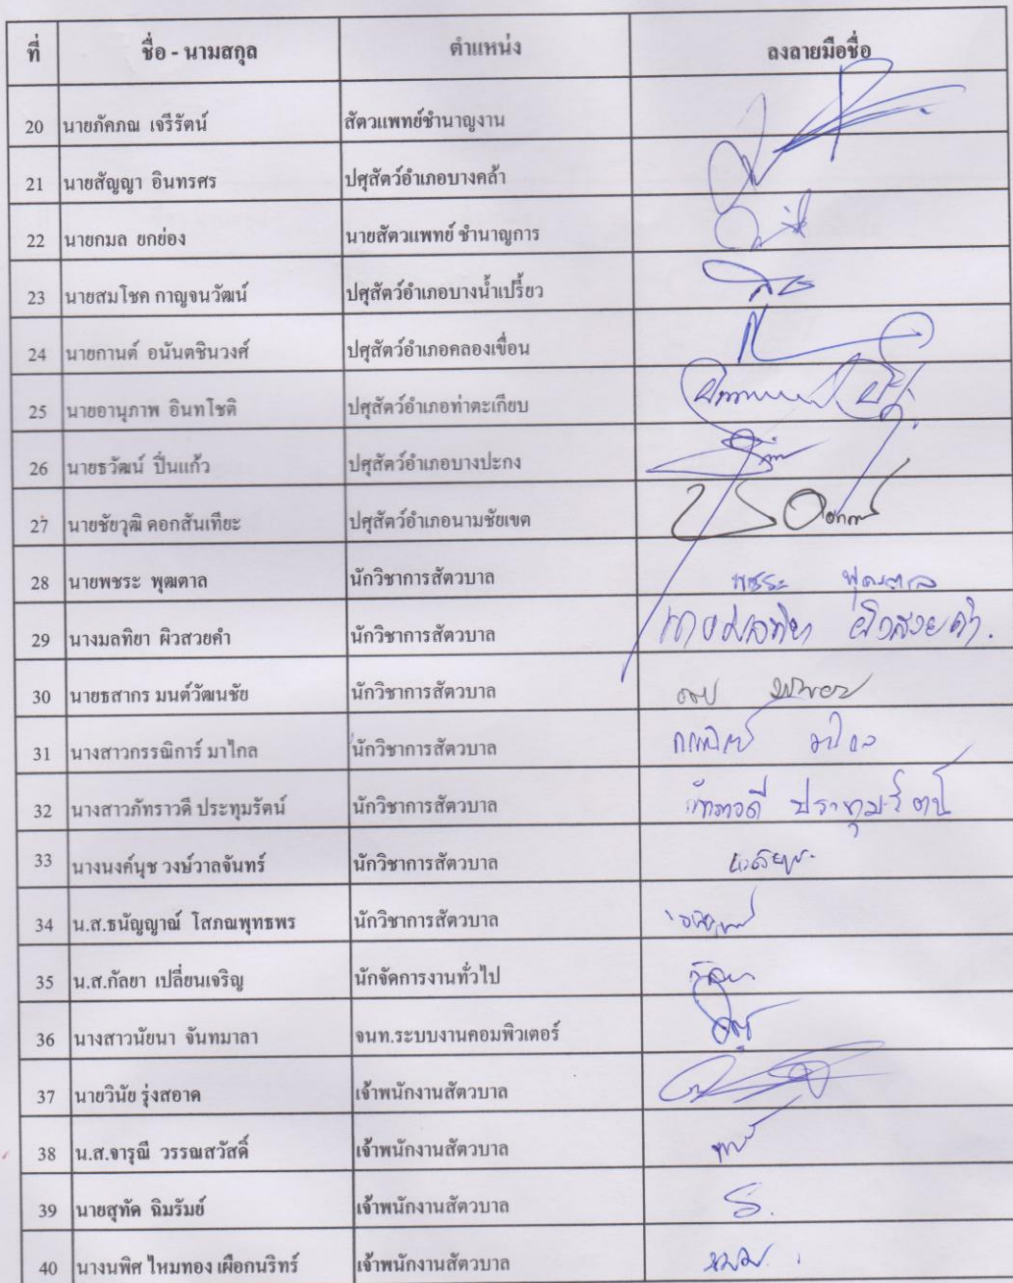 ที่ ชื่อ - นามสกุล ตำแหน่ง ลงลายมือชื่อ
20 นายภัคภณ เจรีรัตน์ สัตวแพทย์ชำนาญงาน
21 นายสัญญา อินทรศร ปศุสัตว์อำเภอบางคล้า
22 นายกมล ยกย่อง นายสัตวแพทย์ ชำนาญการ
23 นายสมโชค กาญจนวัฒน์ ปศุสัตว์อำเภอบางน้ำเปรี้ยว
24 นายกานต์ อนันตชินวงศ์ ปศุสัตว์อำเภอคลองเขื่อน
25 นายอานุภาพ อินทโชติ ปศุสัตว์อำเภอท่าตะเกียบ
26 นายธวัฒน์ ปิ่นแก้ว ปศุสัตว์อำเภอบางปะกง
27 นายชัยวุฒิ ดอกสันเทียะ ปศุสัตว์อำเภอนามชัยเขต
28 นายพชระ พุฒตาล นักวิชาการสัตวบาล พชระ พุฒตาล
29 นางมลทิยา ผิวสวยคำ นักวิชาการสัตวบาล นางมลทิยา ผิวสวยคำ.
30 นายธสากร มนต์วัฒนชัย นักวิชาการสัตวบาล
31 นางสาวกรรณิการ์ มาไกล นักวิชาการสัตวบาล กรรณิการ์ มาไกล
32 นางสาวภัทราวดี ประทุมรัตน์ นักวิชาการสัตวบาล ภัทราวดี ประทุมรัตน์
33 นางนงค์นุช วงษ์วาลจันทร์ นักวิชาการสัตวบาล
34 น.ส.ธนัญญาณ์ โสภณพุทธพร นักวิชาการสัตวบาล
35 น.ส.กัลยา เปลี่ยนเจริญ นักจัดการงานทั่วไป
36 นางสาวนัยนา จันทมาลา จนท.ระบบงานคอมพิวเตอร์
37 นายวินัย รุ่งสอาด เจ้าพนักงานสัตวบาล
38 น.ส.จารุณี วรรณสวัสดิ์ เจ้าพนักงานสัตวบาล
39 นายสุทัด ฉิมรัมย์ เจ้าพนักงานสัตวบาล
40 นางนพิศ ไหมทอง เผือกนริทร์ เจ้าพนักงานสัตวบาล